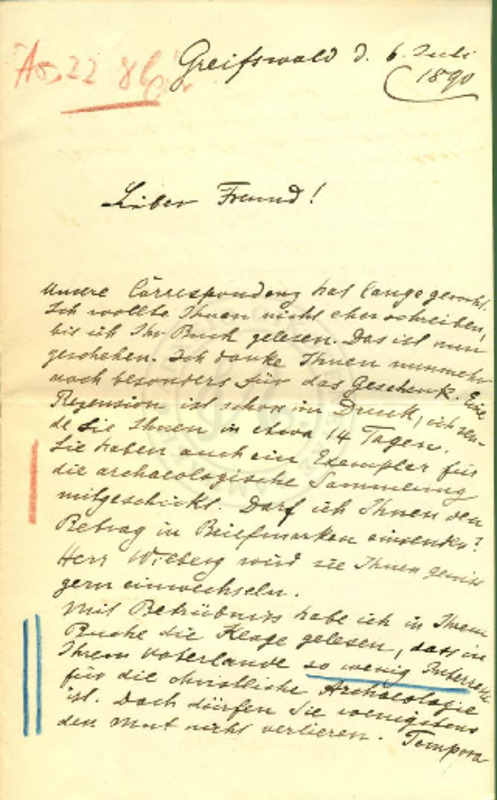 As, 22 86
Greifswald d. 6. Juli
1890
Lieber Freund!
Unsere Correspondenz hat lange geruht.
Ich wollte Ihnen nicht eher schreiben,
bis ich Ihr Buch gelesen. Das ist nun
geschehen. Ich danke Ihnen nunmehr
noch besonders für das Geschenk. Eine
Rezension ist schon im Druck, ich sen-
de sie Ihnen in etwa 14 Tagen.
Sie haben auch ein Exemplar für
die archaeologische Sammlung
mitgeschickt. Darf ich Ihnen den
Betrag in Briefmarken einsenden?
Herr Wilberg wird sie Ihnen gewiss
gern einwechseln.
Mit Betrübniss habe ich in Ihrem
Buche die Klage gelesen, dass in
Ihrem Vaterlande so wenig Interesse
für die christliche Archaeologie
ist. Doch dürfen Sie wenigstens
den Mut nicht verlieren. Tempora